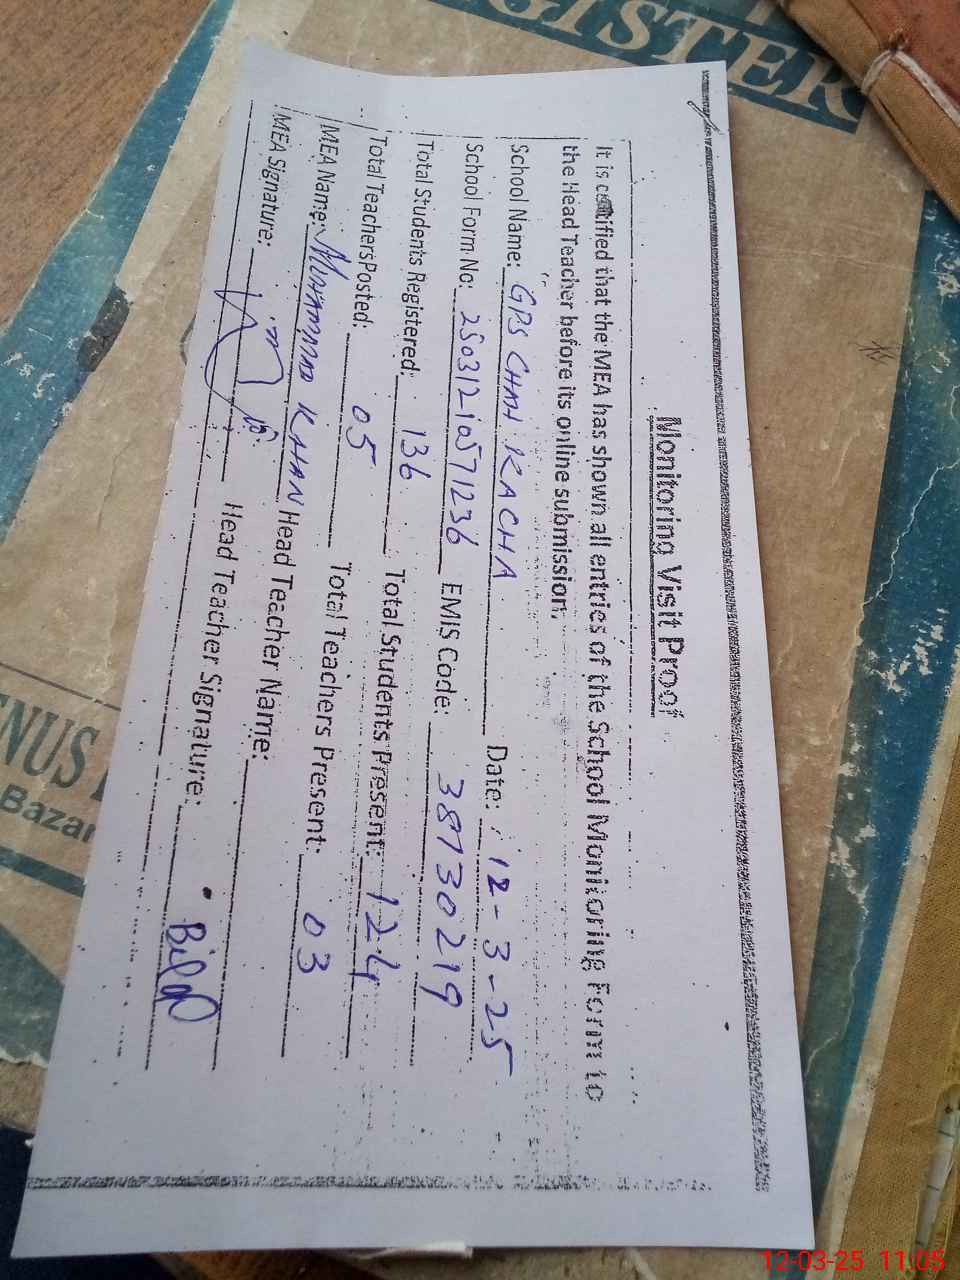 GISTER
Monitoring Visit Proof
It is certified that the MEA has shown all entries of the School Monitoring Form to
the Head Teacher before its online submission.
School Name: GPS CHAH KACHA Date: 12-3-25
School Form No: 25031210571236 EMIS Code: 38730219
Total Students Registered: 136 Total Students Present: 124
Total Teachers Posted: 05 Total Teachers Present: 03
MEA Name: MUHAMMAD KHAN Head Teacher Name:
MEA Signature: Head Teacher Signature: Bilal
ENUS
Bazar
12-03-25 11:05